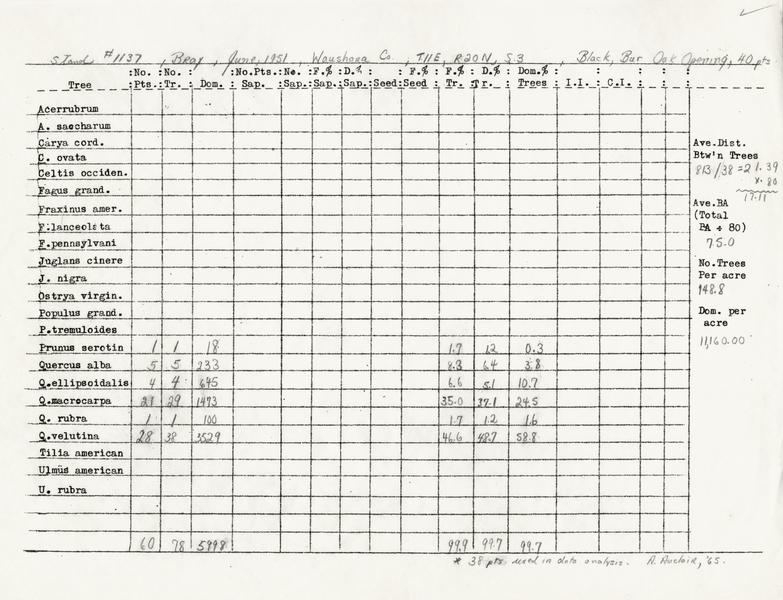 Stand #1137, Bray, June, 1951, Waushara Co., T11E, R20N, S.3, Black, Bur Oak Opening, 40 pts
:No. :No. : :No.Pts.:No. :F.% :D.% : :F.% :F.% :D.% :Dom.% : : : : :
Tree :Pts.:Tr. : Dom. : Sap. :Sap.:Sap.:Sap.:Seed:Seed : Tr. :Tr. :Trees : I.I. : C.I. : : :
Acerrubrum
A. saccharum
Carya cord.
C. ovata
Celtis occiden.
Fagus grand.
Fraxinus amer.
F.lanceolata
F.pennsylvani
Juglans cinere
J. nigra
Ostrya virgin.
Populus grand.
P.tremuloides
Prunus serotin 1 1 18 1.7 1.2 0.3
Quercus alba 5 5 233 8.3 6.4 3.8
Q.ellipsoidalis 4 4 645 6.6 5.1 10.7
Q.macrocarpa 21 29 1473 35.0 37.1 24.5
Q. rubra 1 1 100 1.7 1.2 1.6
Q.velutina 28 38 3529 46.6 48.7 58.8
Tilia american
Ulmus american
U. rubra
60 78 5998 99.9 99.7 99.7
Ave.Dist.
Btw'n Trees
813/38 = 21.39
x .80
17.11
Ave.BA
(Total
BA ÷ 80)
75.0
No.Trees
Per acre
148.8
Dom. per
acre
11,160.00
* 38 pts. used in data analysis. A. Auclair, '65.